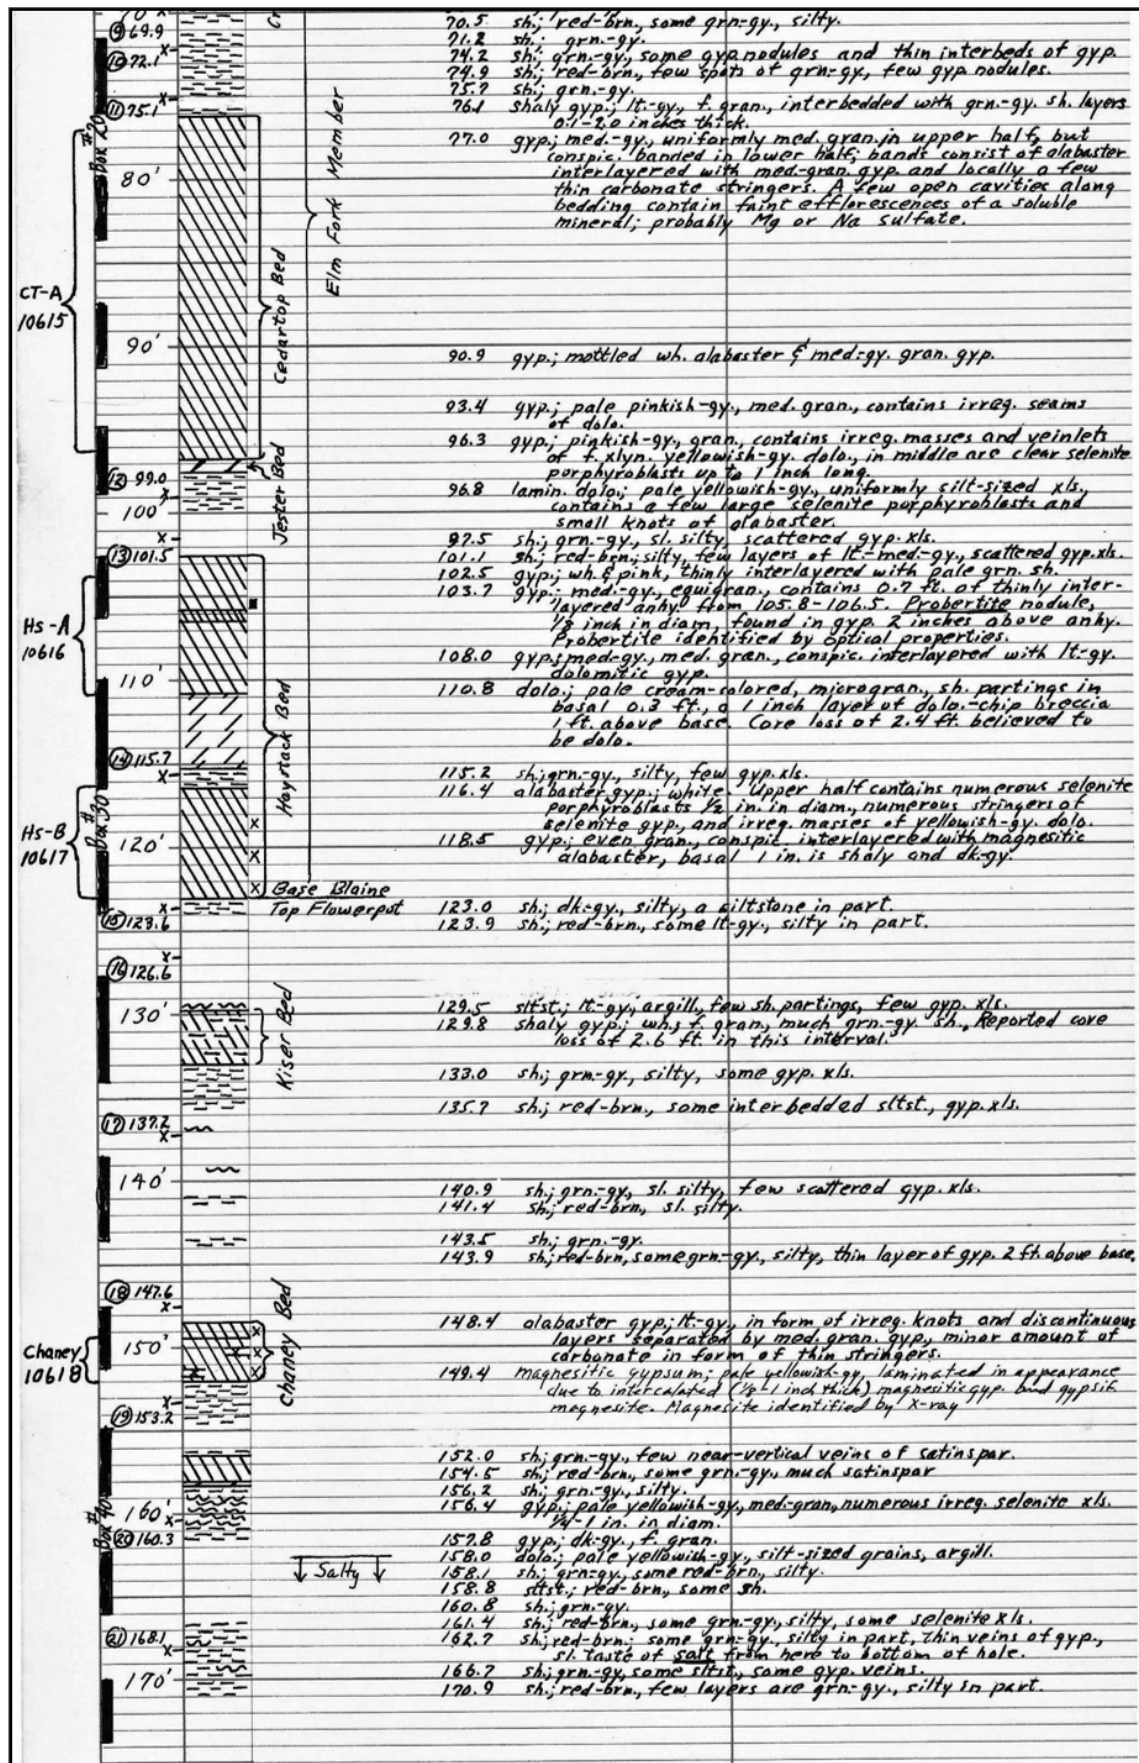 70.5 sh.; red-brn., some grn-gy., silty.
⑨ 69.9
71.2 sh.; grn.-gy.
⑩ 72.1
74.2 sh.; grn-gy., some gyp. nodules and thin interbeds of gyp.
74.9 sh.; red-brn., few spots of grn-gy., few gyp. nodules.
75.7 sh.; grn-gy.
⑪ 75.1
76.1 shaly gyp.; lt.-gy., f. gran., interbedded with grn.-gy. sh. layers
0.1-2.0 inches thick.
77.0 gyp.; med.-gy., uniformly med. gran. in upper half, but
conspic. banded in lower half; bands consist of alabaster
interlayered with med-gran. gyp. and locally a few
thin carbonate stringers. A few open cavities along
bedding contain faint efflorescences of a soluble
mineral; probably Mg or Na sulfate.
Box #20
80'
Elm Fork Member
Cedartop Bed
CT-A
10615
90'
90.9 gyp.; mottled wh. alabaster & med-gy. gran. gyp.
93.4 gyp.; pale pinkish-gy., med. gran., contains irreg. seams
of dolo.
96.3 gyp.; pinkish-gy., gran., contains irreg. masses and veinlets
of f. xlyn. yellowish-gy. dolo., in middle are clear selenite
porphyroblasts up to 1 inch long.
Jester Bed
⑫ 99.0
96.8 lamin. dolo.; pale yellowish-gy., uniformly silt-sized xls.,
contains a few large selenite porphyroblasts and
small knots of alabaster.
100'
97.5 sh.; grn-gy., sl. silty, scattered gyp. xls.
⑬ 101.5
101.1 sh.; red-brn.; silty, few layers of lt.-med-gy., scattered gyp. xls.
102.5 gyp.; wh. & pink, thinly interlayered with pale grn. sh.
103.7 gyp.; med-gy., equigran., contains 0.7 ft. of thinly inter-
layered anhy. from 105.8-106.5. Probertite nodule,
1/3 inch in diam., found in gyp. 2 inches above anhy.
Probertite identified by optical properties.
Hs-A
10616
108.0 gyp.; med-gy., med. gran., conspic. interlayered with lt-gy.
dolomitic gyp.
110'
110.8 dolo.; pale cream-colored, microgran., sh. partings in
basal 0.3 ft., a 1 inch layer of dolo.-chip breccia
1 ft. above base. Core loss of 2.4 ft. believed to
be dolo.
Haystack Bed
⑭ 115.7
115.2 sh.; grn-gy., silty, few gyp. xls.
116.4 alabaster gyp.; white. Upper half contains numerous selenite
porphyroblasts 1/2 in. in diam., numerous stringers of
selenite gyp., and irreg. masses of yellowish-gy. dolo.
Box #30
Hs-B
10617
120'
118.5 gyp.; even gran., conspic. interlayered with magnesitic
alabaster, basal 1 in. is shaly and dk-gy.
Base Blaine
Top Flowerpot
123.0 sh.; dk-gy., silty, a siltstone in part.
⑮ 123.6
123.9 sh.; red-brn., some lt-gy., silty in part.
⑯ 126.6
130'
Kiser Bed
129.5 sltst.; lt-gy., argill., few sh. partings, few gyp. xls.
129.8 shaly gyp.; wh., f. gran., much grn-gy. sh., Reported core
loss of 2.6 ft. in this interval.
133.0 sh.; grn-gy., silty, some gyp. xls.
135.7 sh.; red-brn., some interbedded sltst., gyp. xls.
⑰ 137.2
140'
140.9 sh.; grn.-gy., sl. silty, few scattered gyp. xls.
141.4 sh.; red-brn., sl. silty.
143.5 sh.; grn.-gy.
143.9 sh.; red-brn., some grn-gy., silty, thin layer of gyp. 2 ft. above base.
⑱ 147.6
Chaney Bed
148.4 alabaster gyp.; lt-gy., in form of irreg. knots and discontinuous
layers separated by med. gran. gyp., minor amount of
carbonate in form of thin stringers.
Chaney
10618
150'
149.4 magnesitic gypsum; pale yellowish-gy., laminated in appearance
due to intercalated (1/8-1 inch thick) magnesitic gyp. and gypsif.
magnesite. Magnesite identified by X-ray
⑲ 153.2
152.0 sh.; grn-gy., few near-vertical veins of satinspar.
154.5 sh.; red-brn., some grn-gy., much satinspar
156.2 sh.; grn-gy., silty.
156.4 gyp.; pale yellowish-gy., med-gran., numerous irreg. selenite xls.
1/4-1 in. in diam.
Box #40
160'
⑳ 160.3
157.8 gyp.; dk-gy., f. gran.
158.0 dolo.; pale yellowish-gy., silt-sized grains, argill.
158.1 sh.; grn-gy., some red-brn., silty.
↓ Salty ↓
158.8 sltst.; red-brn., some sh.
160.8 sh.; grn-gy.
161.4 sh.; red-brn., some grn-gy., silty, some selenite xls.
㉑ 168.1
162.7 sh.; red-brn.; some grn-gy., silty in part, thin veins of gyp.,
sl. taste of salt from here to bottom of hole.
166.7 sh.; grn-gy., some sltst., some gyp. veins.
170'
170.9 sh.; red-brn., few layers are grn-gy., silty in part.